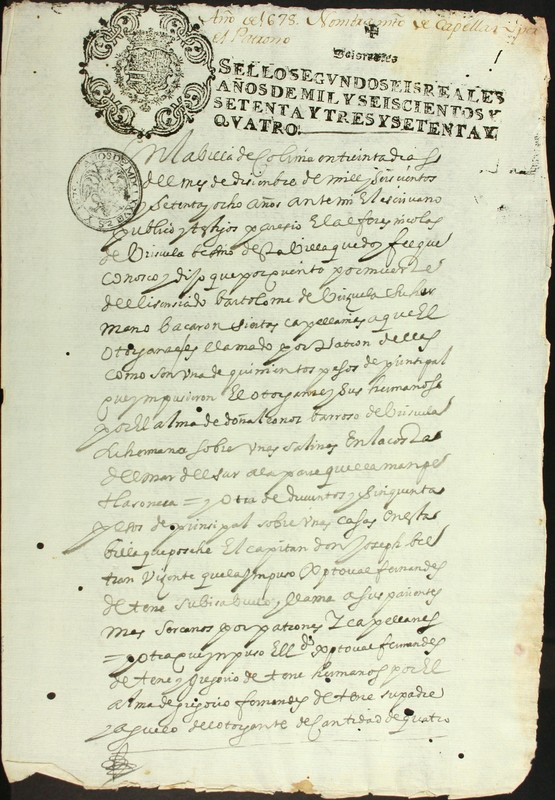 Año de 1678. Nombramto de Capellan por
el Patrono
SELLO SEGVNDO SEIS REALES
AÑOS DE MIL Y SEISCIENTOS Y
SETENTA Y TRES Y SETENTA Y
QVATRO.
En la billa de Colima en treinta dias
del mes de disienbre de mill y seis cientos
y setenta y ocho años ante mi el escrivano
publico y testigos paresio el alferes nicolas
de Brisuela besino desta Villa que doy fee que
conosco y dijo que por quanto por muerte
del lisensiado bartolome de Brisuela su her
mano bacaron siertas capellanias a que el
otorgante es llamado por Patron dellas
como son vna de quinientos pesos de prinsipal
que ynpusieron el otorgante y sus hermanos
por el alma de doña leonor barroso de Brisuela
su hermana sobre vnas salinas en la costa
del mar del sur a la parte que llaman
= y otra de ducientos y sinquenta
pesos de prinsipal sobre vnas casas en esta
billa que posehe El capitan don Joseph bel
tran Visente que las ynpuso Xptoval fernandes
de tene su bisabuelo y llama a sus parientes
mas sercanos por patrones y capellanes
= y otra que ynpuso El Ldo Xptoval fernandes
de tene y Gregorio de tene hermanos por El
alma de gregorio fernandes de tene su padre
y aguelo del otorgante de cantidad de quatro